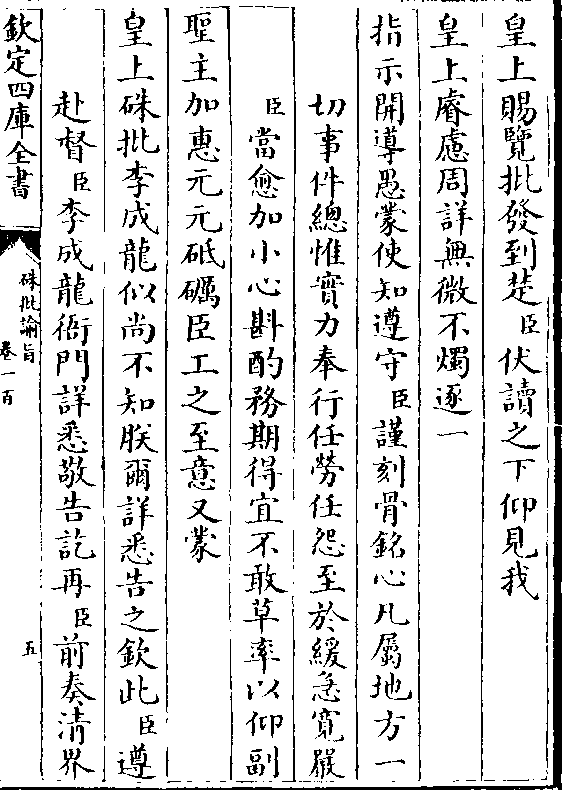 皇上賜覽批發到楚臣伏讀之下仰見我
皇上睿慮周詳無微不燭逐一
指示開導愚蒙使知遵守臣謹刻骨銘心凡屬地方一
切事件總惟實力奉行任勞任怨至於緩急寛嚴
臣當愈加小心斟酌務期得宜不敢草率以仰副
聖主加惠元元砥礪臣工之至意又蒙
皇上硃批李成龍似尚不知朕爾詳悉告之欽此臣遵
赴督臣李成龍衙門詳悉敬告訖再臣前奏清界
欽定四庫全書
硃批諭旨
卷一百
五